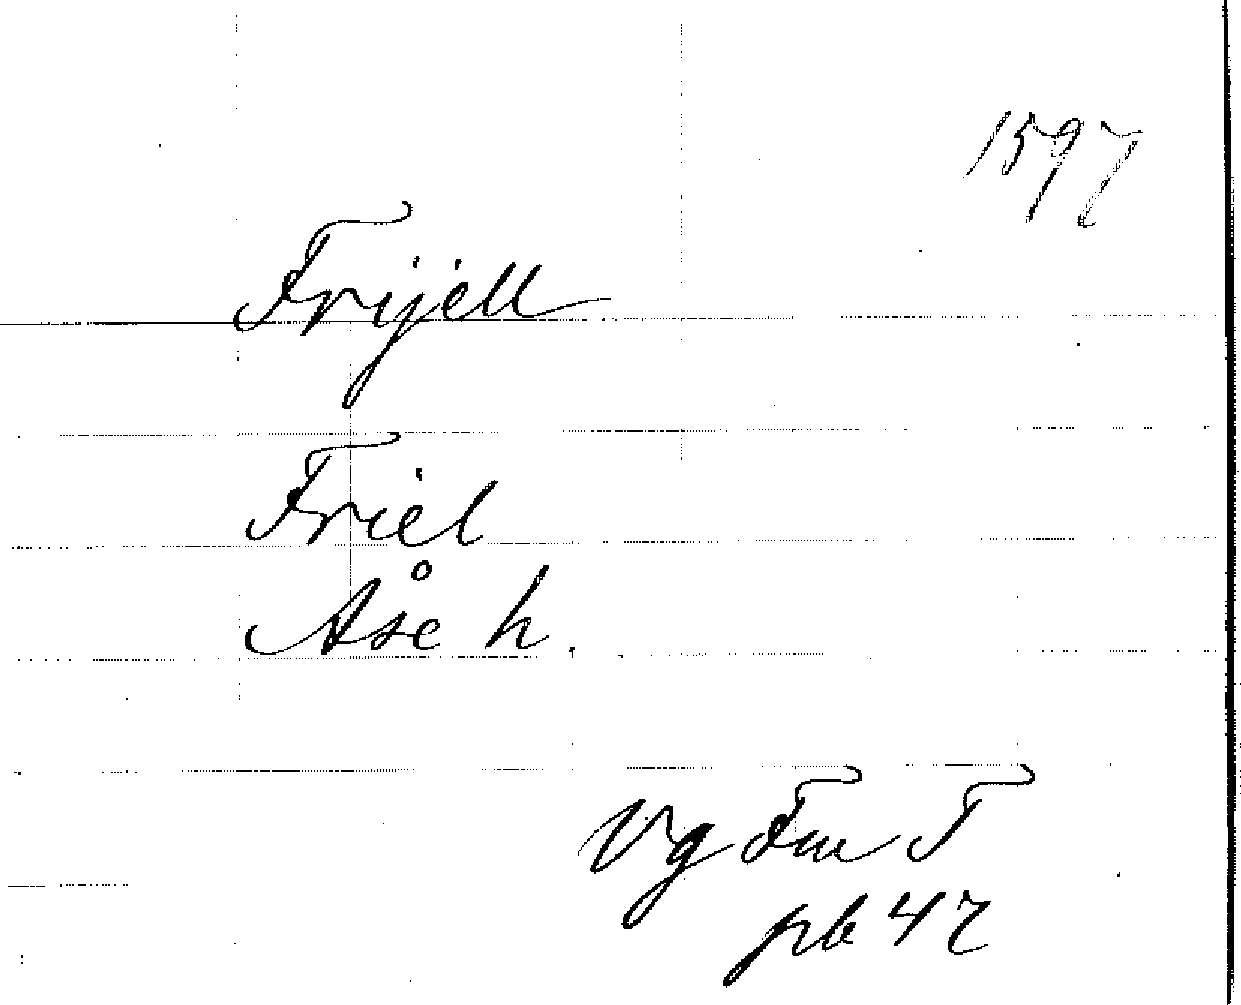 1597
Frijell
Friel
Åse h.
Vg Fru T
pb 47